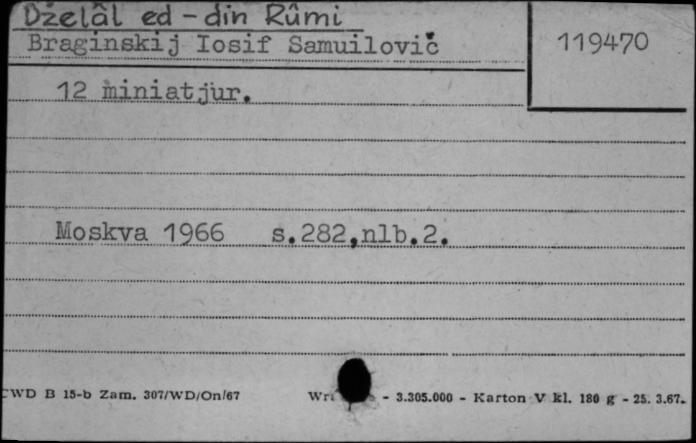 Dželâl ed-din Rûmi
Braginskij Iosif Samuilovič
119470
12 miniatjur.
Moskva 1966 s.282,nlb.2.
CWD B 15-b Zam. 307/WD/On/67 - 3.305.000 - Karton V kl. 180 g - 25. 3.67.